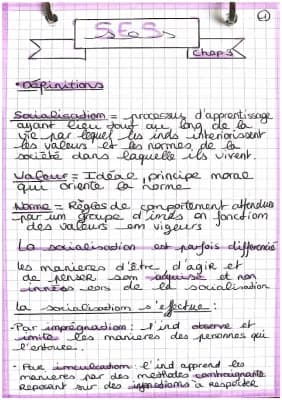 1
S.E.S.
Chap 3
• Définitions
Socialisation = processus d'apprentissage
ayant lieu tout au long de la
vie par lequel les inds interiorisent
les valeurs et les normes de la
société dans laquelle ils vivent.
Valeur = Idéal, principe moral
qui oriente la norme
Norme = Règles de comportement attendus
par un groupe d'inds en fonction
des valeurs em vigeurs
La socialisation est parfois différencié
les manières d'être, d'agir et
de penser sont acquise et non
innées lors de la socialisation
la socialisation s'effectue :
- Par imprégnation : l'ind observe et
imite les manières des personnes qui
l'entoure.
- Par inculcation : l'ind apprend les
manières par des méthodes contraignante
Reposent sur des injonctions à respecter